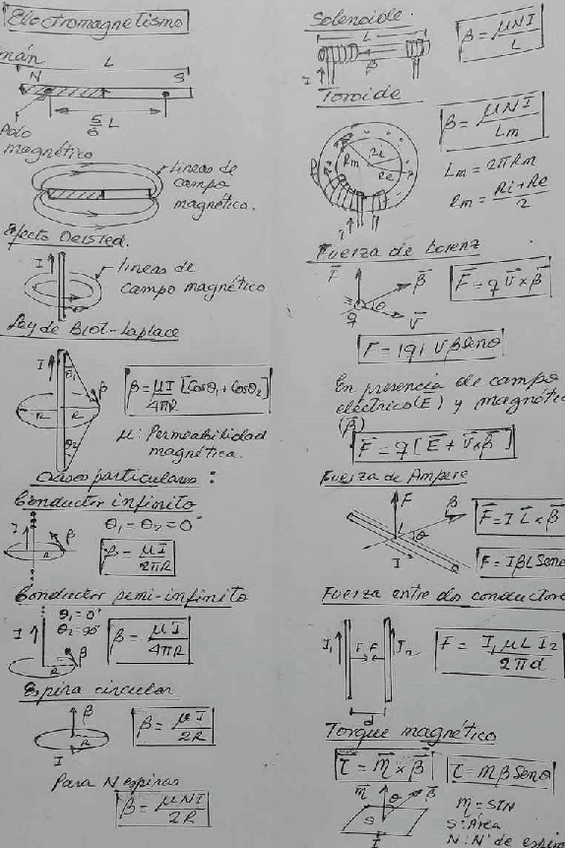 Electromagnetismo
mán
L
N
S
5/6 L
Polo
magnético
Líneas de
campo
magnético.
Efecto Oersted.
I
líneas de
campo magnético
Ley de Biot-Laplace
I
θ1
R
R
β
θ2
β = μI/4πR [Cosθ1 + Cosθ2]
μ: Permeabilidad
magnética.
Casos particulares:
Conductor infinito
θ1 = θ2 = 0°
I
β
R
β = μI/2πR
Conductor semi-infinito
θ1 = 0°
θ2 = 90°
I
β
R
β = μI/4πR
Espira circular
β
R
I
β = μI/2R
Para N espiras
β = μNI/2R
Solenoide.
L
I
β
β = μNI/L
Toroide
Rm
Ri
Re
I
β = μNI/Lm
Lm = 2πRm
Rm = Ri + Re/2
Fuerza de Lorenz
F
β
θ
q
V
F = q V × β
F = |q| V β Senθ
En presencia de campo
eléctrico (E) y magnétic
(β)
F = q [E + V × β]
Fuerza de Ampere
F
β
L
θ
I
F = I L × β
F = IβL Senθ
Fuerza entre dos conductore
I1
F
F
I2
d
F = I1 μ L I2/2πd
Torque magnético
τ = m × β
τ = mβ Senθ
m
θ
β
S
I
m = SIN
S: Área
N: N° de espir